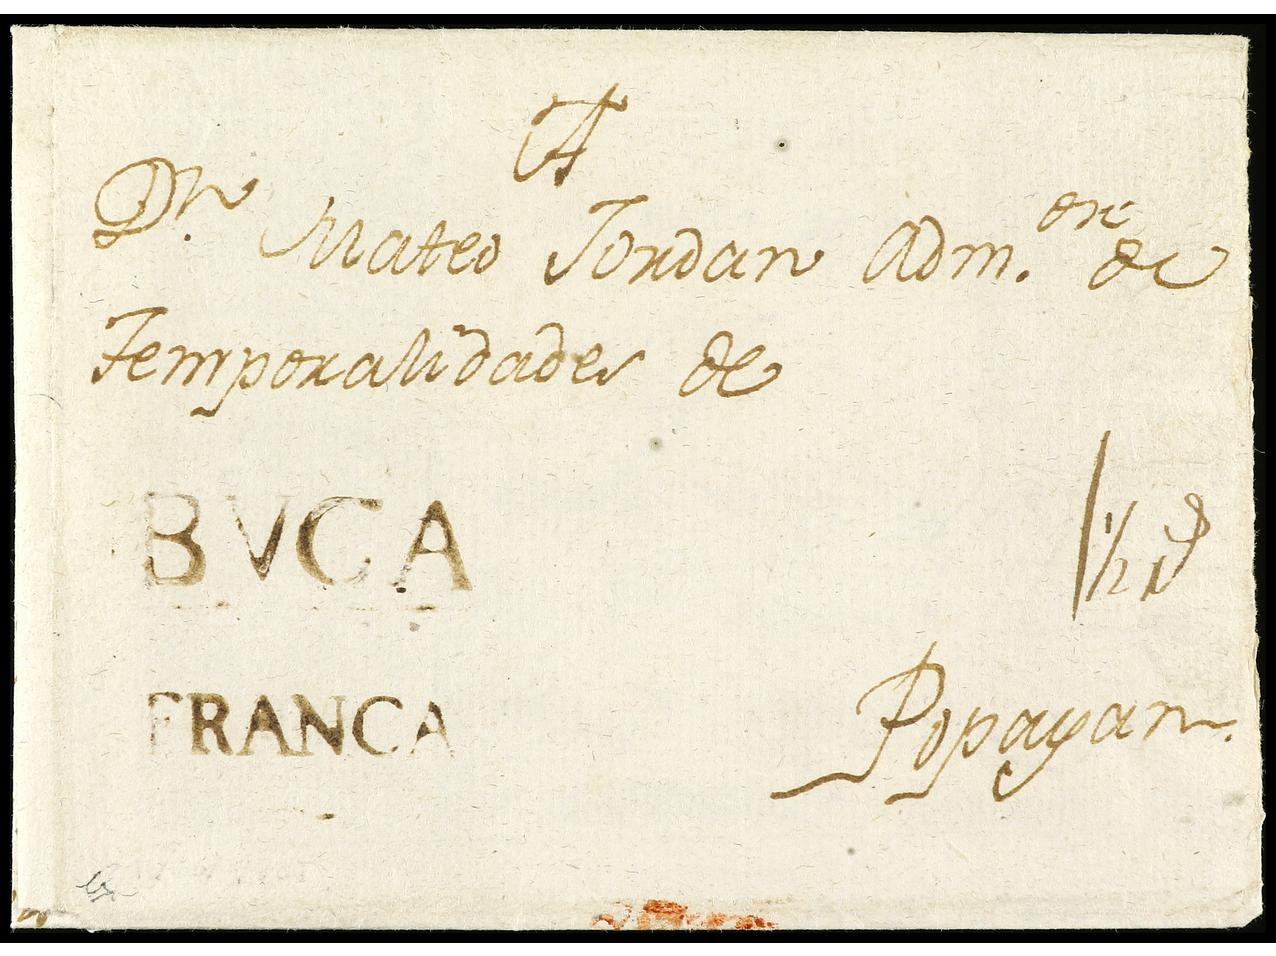 A
Dn. Mateo Jordan Adm.or de
Temporalidades de
BVCA
1 1/2 rs
FRANCA
Popayan.